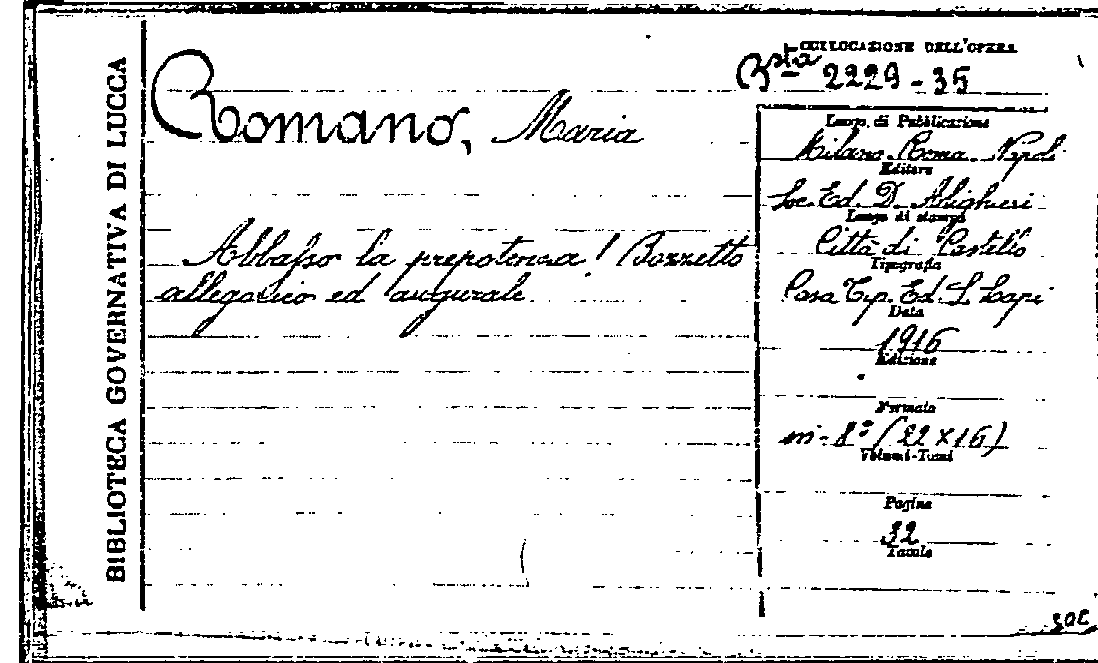 BIBLIOTECA GOVERNATIVA DI LUCCA
COLLOCAZIONE DELL'OPERA
Bsta 2229-35
Romano, Maria
Abbasso la prepotenza! Bozzetto
allegorico ed augurale
Luogo di Pubblicazione
Milano Roma Napoli
Editore
Soc. Ed. D. Alighieri
Luogo di stampa
Città di Castello
Tipografia
Casa Tip. Ed. S. Lapi
Data
1916
Edizione
Formato
in-8° (22x16)
Volumi-Tomi
Pagine
32
Tavole